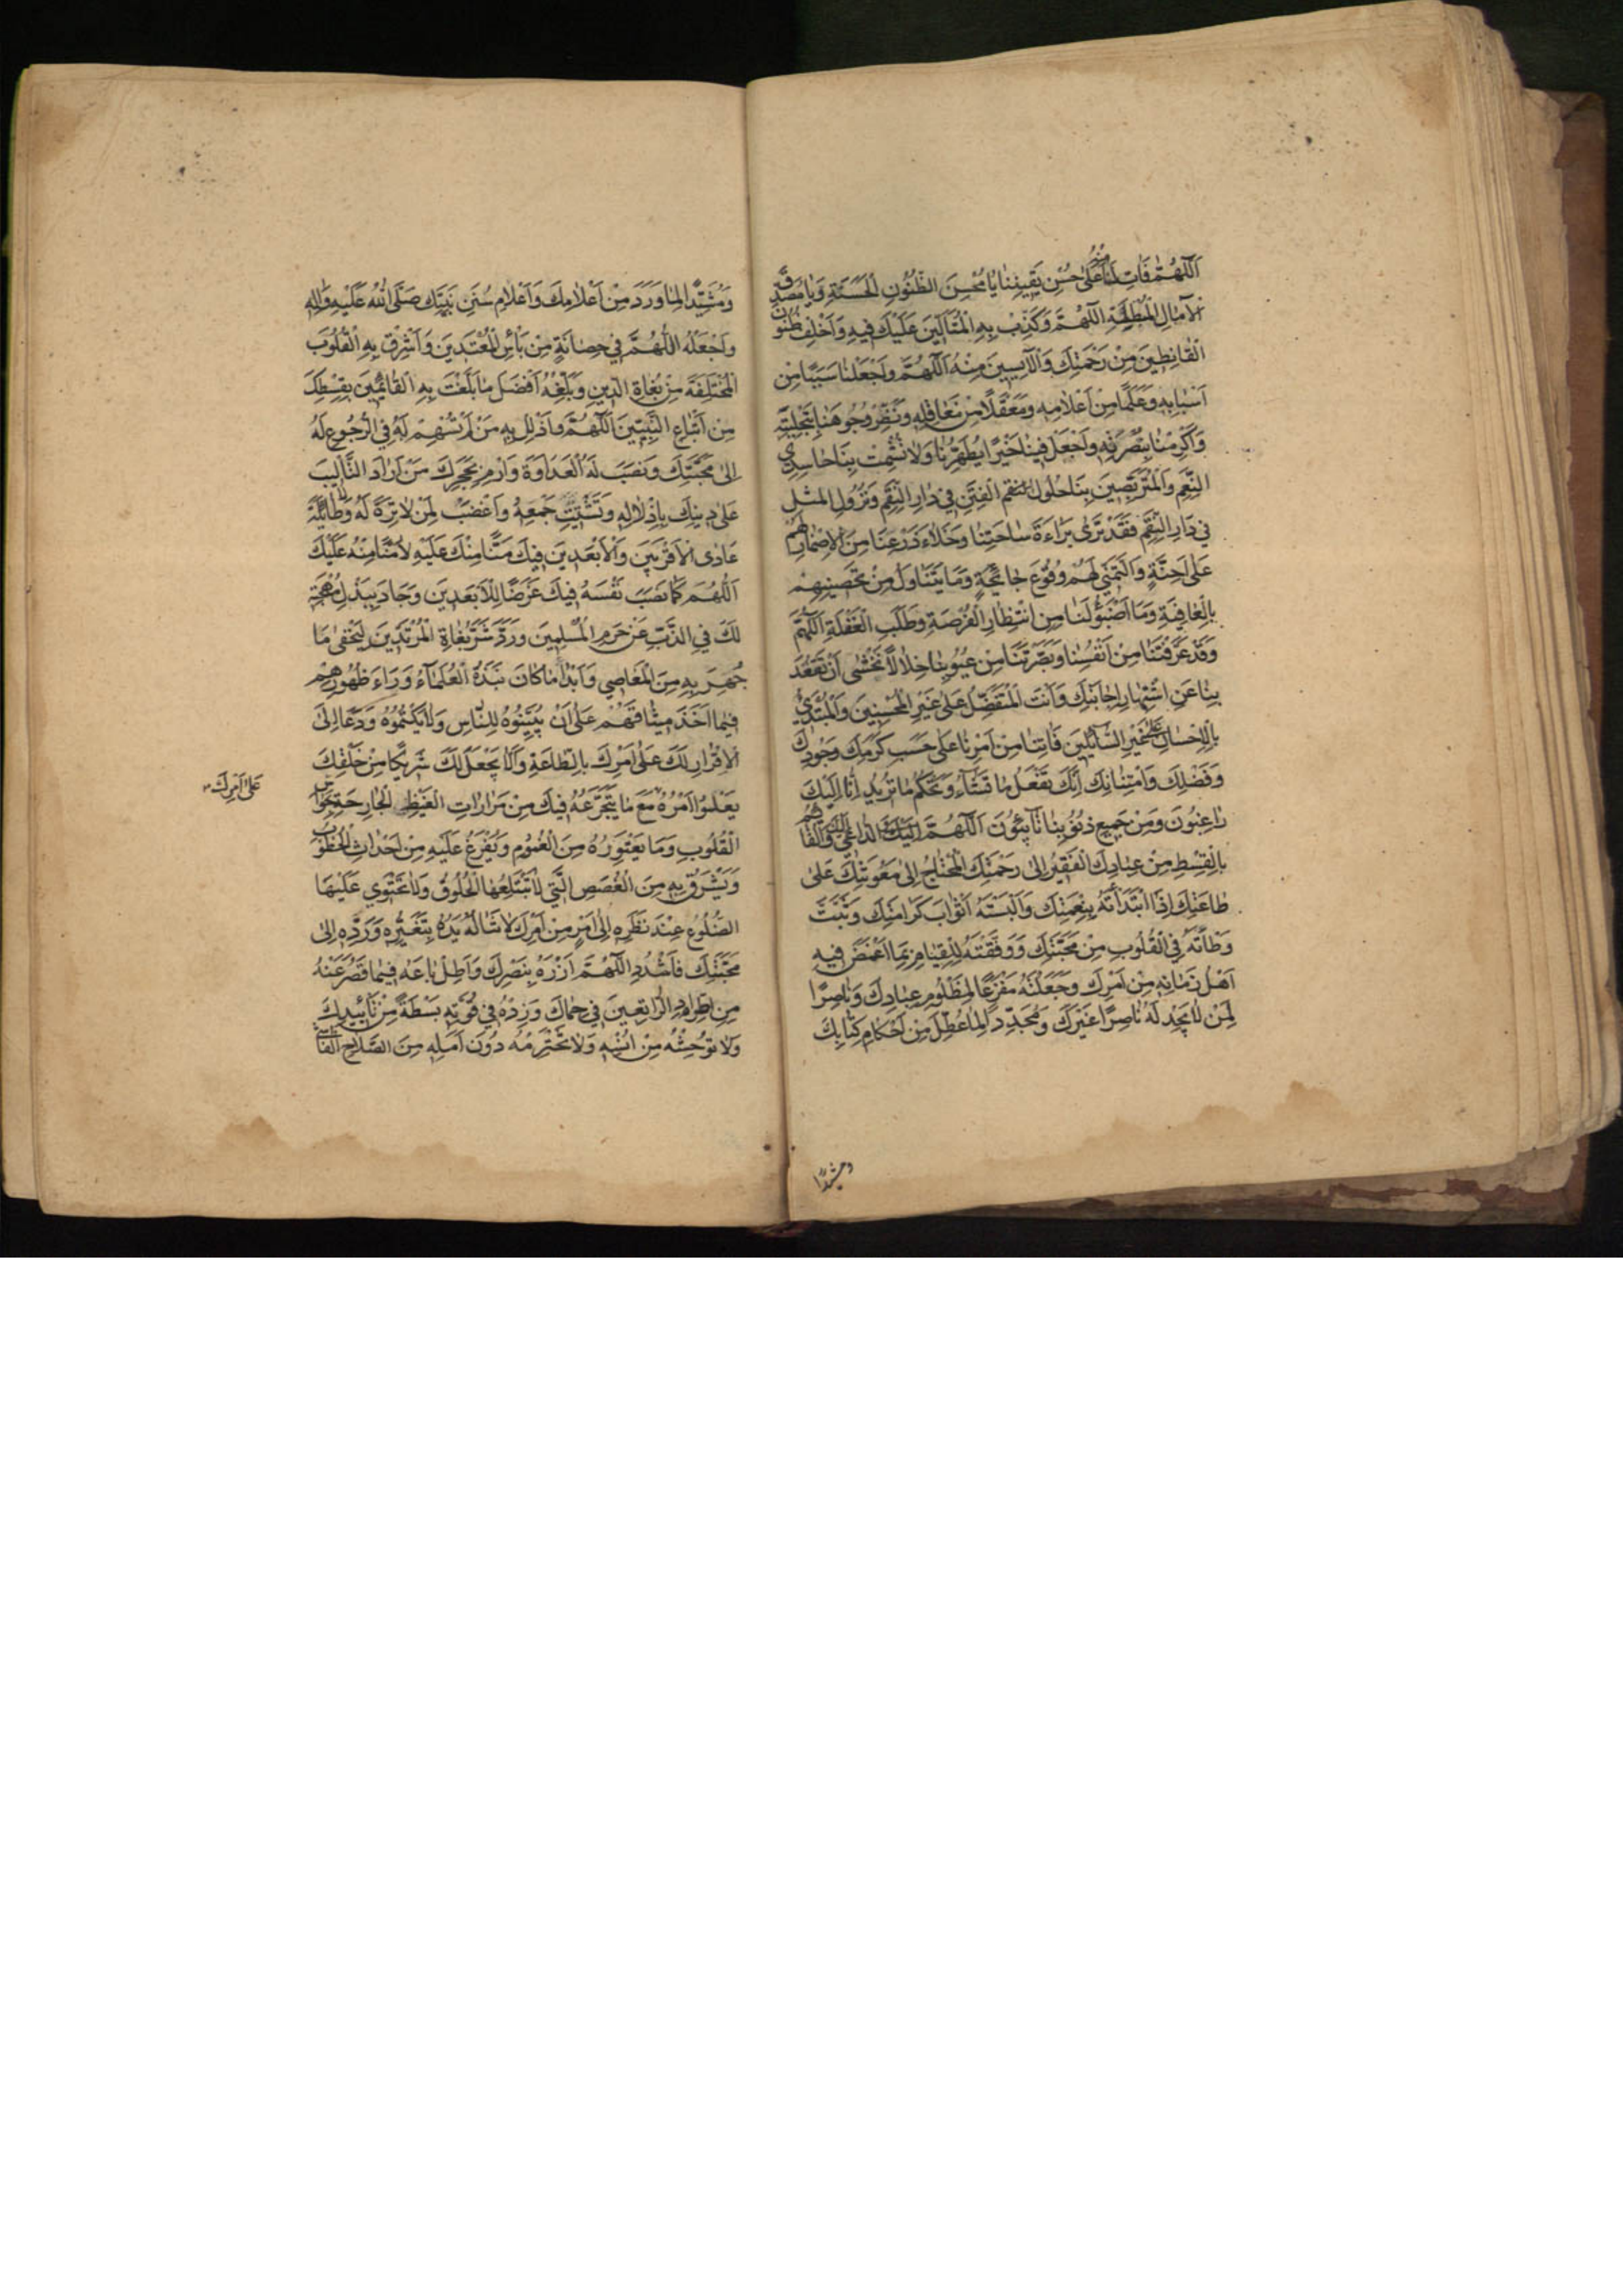 اَللّهُمَّ فَاتِ لَنَا مِنْهُ عَلى حُسْنِ يَقينِنا يا مُحْسِنَ الظُّنُونِ الْحَسَنَةِ وَيا مُصَدِّقَ
الْآمالِ الْمُبْطِئَةِ اَللّهُمَّ وَكَذِّبْ بِهِ الْمُتَاَلّينَ عَلَيْكَ فيهِ وَاَخْلِفْ ظُنُونَ
الْقانِطينَ مِنْ رَحْمَتِكَ وَالْآيِسينَ مِنْهُ اَللّهُمَّ وَاجْعَلْنا سَبَبًا مِنْ
اَسْبابِهِ وَعَلَمًا مِنْ اَعْلامِهِ وَمَعْقِلًا مِنْ مَعاقِلِهِ وَنَضِّرْ وُجُوهَنا بِتَجْلِيَتِهِ
وَاَكْرِمْنا بِنُصْرَتِهِ وَاجْعَلْ فينا خَيْرًا يُطَهِّرُنا وَلا تُشْمِتْ بِنا حاسِدِي
النِّعَمِ وَالْمُتَرَبِّصينَ بِنا حُلُولَ الْفِتَنِ في دارِ النِّقَمِ وَنُزُولَ الْمُثَلِ
في دارِ النِّقَمِ فَقَدْ تَرى بَراءَةَ ساحَتِنا وَخَلاءَ ذَرْعِنا مِنَ الْاِضْمارِ لَهُمْ
عَلى اِحْنَةٍ وَالتَّمَنّي لَهُمْ وُقُوعَ جائِحَةٍ وَما يَتَناوَلُ مِنْ تَحْصينِهِمْ
بِالْعافِيَةِ وَما اَضْبَؤُا لَنا مِنِ انْتِظارِ الْفُرْصَةِ وَطَلَبِ الْغَفْلَةِ اَللّهُمَّ
وَقَدْ عَرَّفْتَنا مِنْ اَنْفُسِنا وَبَصَّرْتَنا مِنْ عُيُوبِنا خِلالًا نَخْشى اَنْ تَقْعُدَ
بِنا عَنِ اشْتِهارِ اِجابَتِكَ وَاَنْتَ الْمُتَفَضِّلُ عَلى غَيْرِ الْمُحْسِنينَ وَالْمُبْتَدِئُ
بِالْاِحْسانِ عَلى غَيْرِ السّائِلينَ فَاتِنا مِنْ اَمْرِنا عَلى حَسَبِ كَرَمِكَ وَجُودِكَ
وَفَضْلِكَ وَامْتِنانِكَ اِنَّكَ تَفْعَلُ ما تَشاءُ وَتَحْكُمُ ما تُريدُ اِنّا اِلَيْكَ
راغِبُونَ وَمِنْ جَميعِ ذُنُوبِنا تائِبُونَ اَللّهُمَّ الدّاعي اِلَيْكَ وَالْقائِمُ
بِالْقِسْطِ مِنْ عِبادِكَ الْفَقيرُ اِلى رَحْمَتِكَ الْمُحْتاجُ اِلى مَعُونَتِكَ عَلى
طاعَتِكَ اِذَا ابْتَدَأْتَهُ بِنِعْمَتِكَ وَاَلْبَسْتَهُ اَثْوابَ كَرامَتِكَ وَثَبَّتَّ
وَطْأَتَهُ فِي الْقُلُوبِ مِنْ مَحَبَّتِكَ وَوَفَّقْتَهُ لِلْقِيامِ بِما اَغْمَضَ فيهِ
اَهْلُ زَمانِهِ مِنْ اَمْرِكَ وَجَعَلْتَهُ مَفْزَعًا لِمَظْلُومِ عِبادِكَ وَناصِرًا
لِمَنْ لا يَجِدُ لَهُ ناصِرًا غَيْرَكَ وَمُجَدِّدًا لِما عُطِّلَ مِنْ اَحْكامِ كِتابِكَ
ومشيدا
وَمُشَيِّدًا لِما وَرَدَ مِنْ اَعْلامِكَ وَاَعْلامِ سُنَنِ نَبِيِّكَ صَلَّى اللهُ عَلَيْهِ وَالِهِ
وَاجْعَلْهُ اللّهُمَّ في حِصانَةٍ مِنْ بَأْسِ الْمُعْتَدينَ وَاَشْرِقْ بِهِ الْقُلُوبَ
الْمُخْتَلِفَةَ مِنْ بُغاةِ الدّينِ وَبَلِّغْهُ اَفْضَلَ ما بَلَّغْتَ بِهِ الْقائِمينَ بِقِسْطِكَ
مِنْ اَتْباعِ النَّبِيّينَ اَللّهُمَّ وَاَذْلِلْ بِهِ مَنْ لَمْ تُسْهِمْ لَهُ فِي الرُّجُوعِ لَهُ
اِلى مَحَبَّتِكَ وَنَصَبَ لَهُ الْعَداوَةَ وَارْمِ بِحَجَرِكَ مَنْ اَرادَ التَّاْليبَ
عَلى دينِكَ بِاِذْلالِهِ وَتَشْتيتِ جَمْعِهِ وَاغْضَبْ لِمَنْ لا تِرَةَ لَهُ وَلا طائِلَةَ
عادَى الْاَقْرَبينَ وَالْاَبْعَدينَ فيكَ مَنًّا مِنْكَ عَلَيْهِ لا مَنًّا مِنْهُ عَلَيْكَ
اَللّهُمَّ كَما نَصَبَ نَفْسَهُ فيكَ غَرَضًا لِلْاَبْعَدينَ وَجادَ بِبَذْلِ مُهْجَتِهِ
لَكَ فِي الذَّبِّ عَنْ حَرَمِ الْمُسْلِمينَ وَرَدَّ شَرَّ بُغاةِ الْمُرْتَدّينَ لِيُخْفى ما
جُهِرَ بِهِ مِنَ الْمَعاصي وَاَبْدا ما كانَ نَبَذَهُ الْعُلَماءُ وَراءَ ظُهُورِهِمْ
فيما اَخَذَ ميثاقَهُمْ عَلى اَنْ يُبَيِّنُوهُ لِلنّاسِ وَلا يَكْتُمُوهُ وَدَعا اِلَى
الْاِقْرارِ لَكَ عَلى اَمْرِكَ بِالطّاعَةِ وَاَلّا يَجْعَلَ لَكَ شَريكًا مِنْ خَلْقِكَ
يَعْلُو اَمْرُهُ مَعَ ما يَتَجَرَّعُهُ فيكَ مِنْ مَراراتِ الْغَيْظِ الْجارِحَةِ بِحَواسِّ
الْقُلُوبِ وَما يَعْتَوِرُهُ مِنَ الْغُمُومِ وَيُفْرَغُ عَلَيْهِ مِنْ اَحْداثِ الْخُطُوبِ
وَيَشْرَقُ بِهِ مِنَ الْغُصَصِ الَّتي لا تَبْتَلِعُهَا الْحُلُوقُ وَلا تَحْتَوي عَلَيْهَا
الضُّلُوعُ عِنْدَ نَظَرِهِ اِلى اَمْرٍ مِنْ اَمْرِكَ لا تَنالُهُ يَدُهُ بِتَغْييرِهِ وَرَدِّهِ اِلى
مَحَبَّتِكَ فَاشْدُدِ اللّهُمَّ اَزْرَهُ بِنَصْرِكَ وَاَطِلْ باعَهُ فيما قَصُرَ عَنْهُ
مِنِ اطِّرادِ الرّاتِعينَ في حِماكَ وَزِدْهُ في قُوَّتِهِ بَسْطَةً مِنْ تَأْييدِكَ
وَلا تُوحِشْهُ مِنْ اُنْسِهِ وَلا تَخْتَرِمْهُ دُونَ اَمَلِهِ مِنَ الصَّلاحِ الْفاشي
عَلى اَمْرِكَ